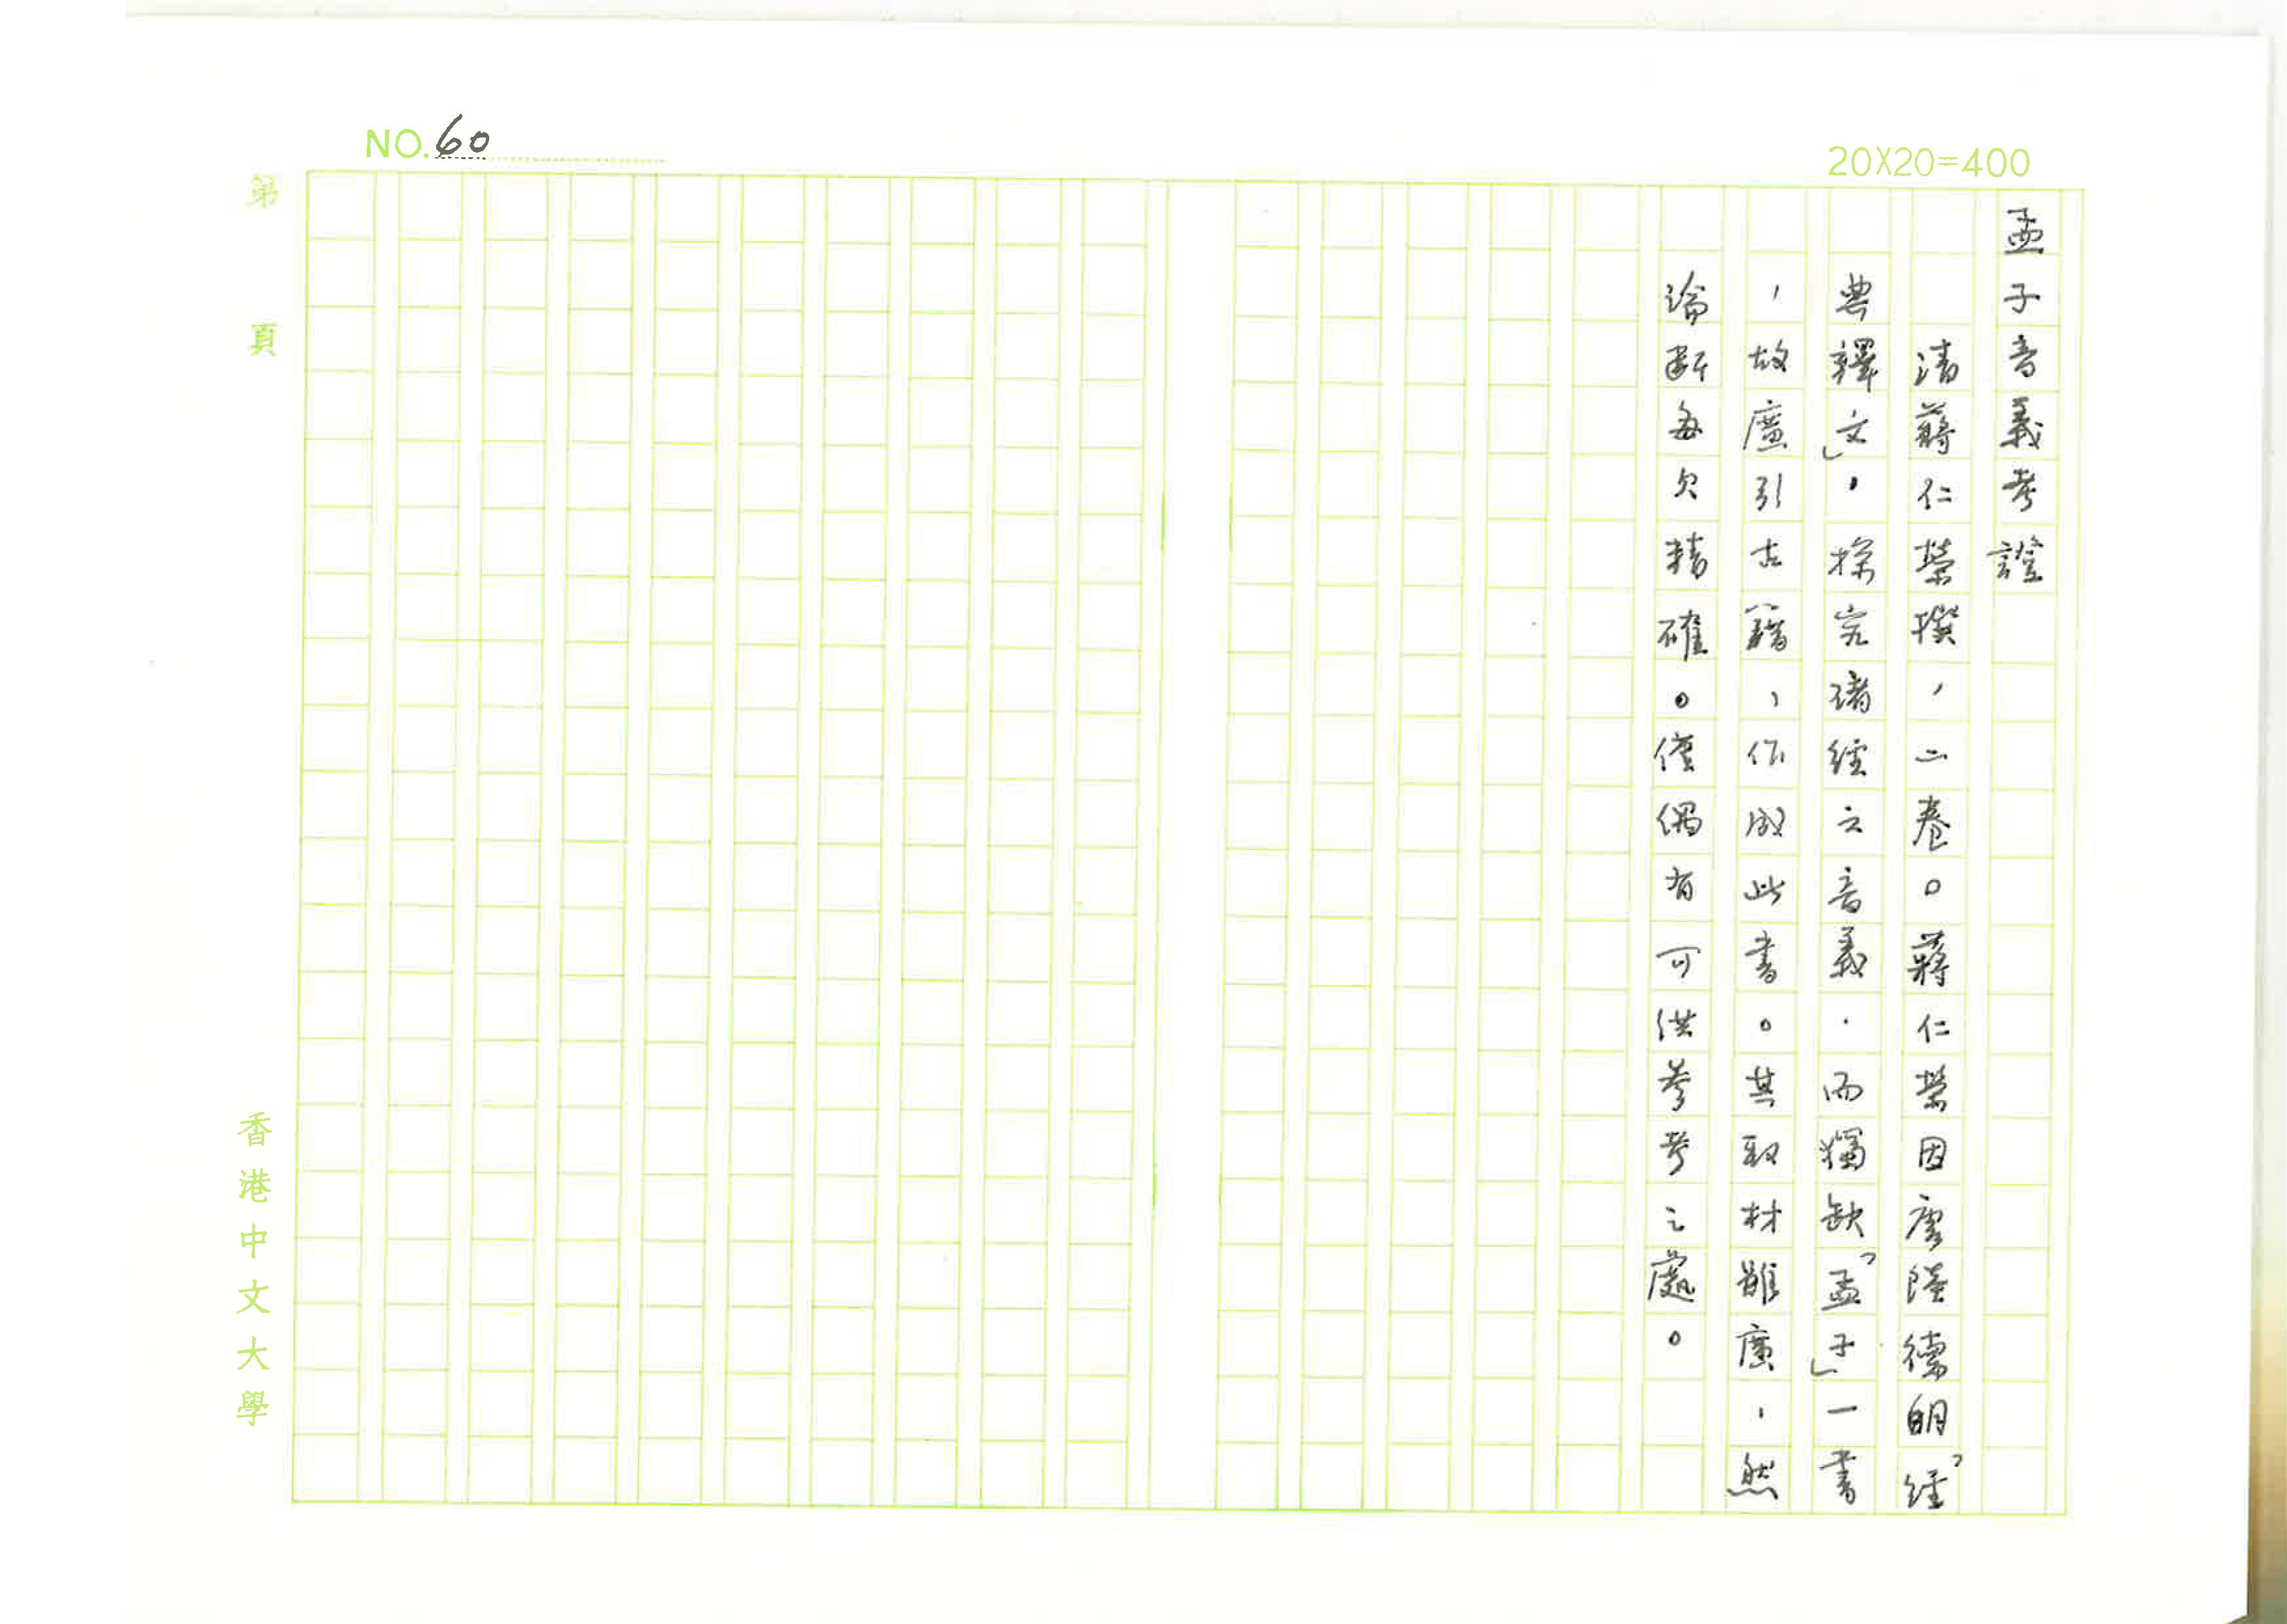 NO.60
20X20=400
孟子音義考證
清蔣仁榮撰，二卷。蔣仁榮因唐陸德明「經
典釋文」，探究諸經之音義，而獨缺「孟子」一書
，故廣引古籍，作成此書。其取材雖廣，然
論斷每欠精確。僅偶有可供參考之處。
第 頁
香港中文大學